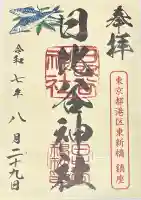 奉拝
東京都港区東新橋 鎮座
日比谷神社
令和七年
八月二十九日